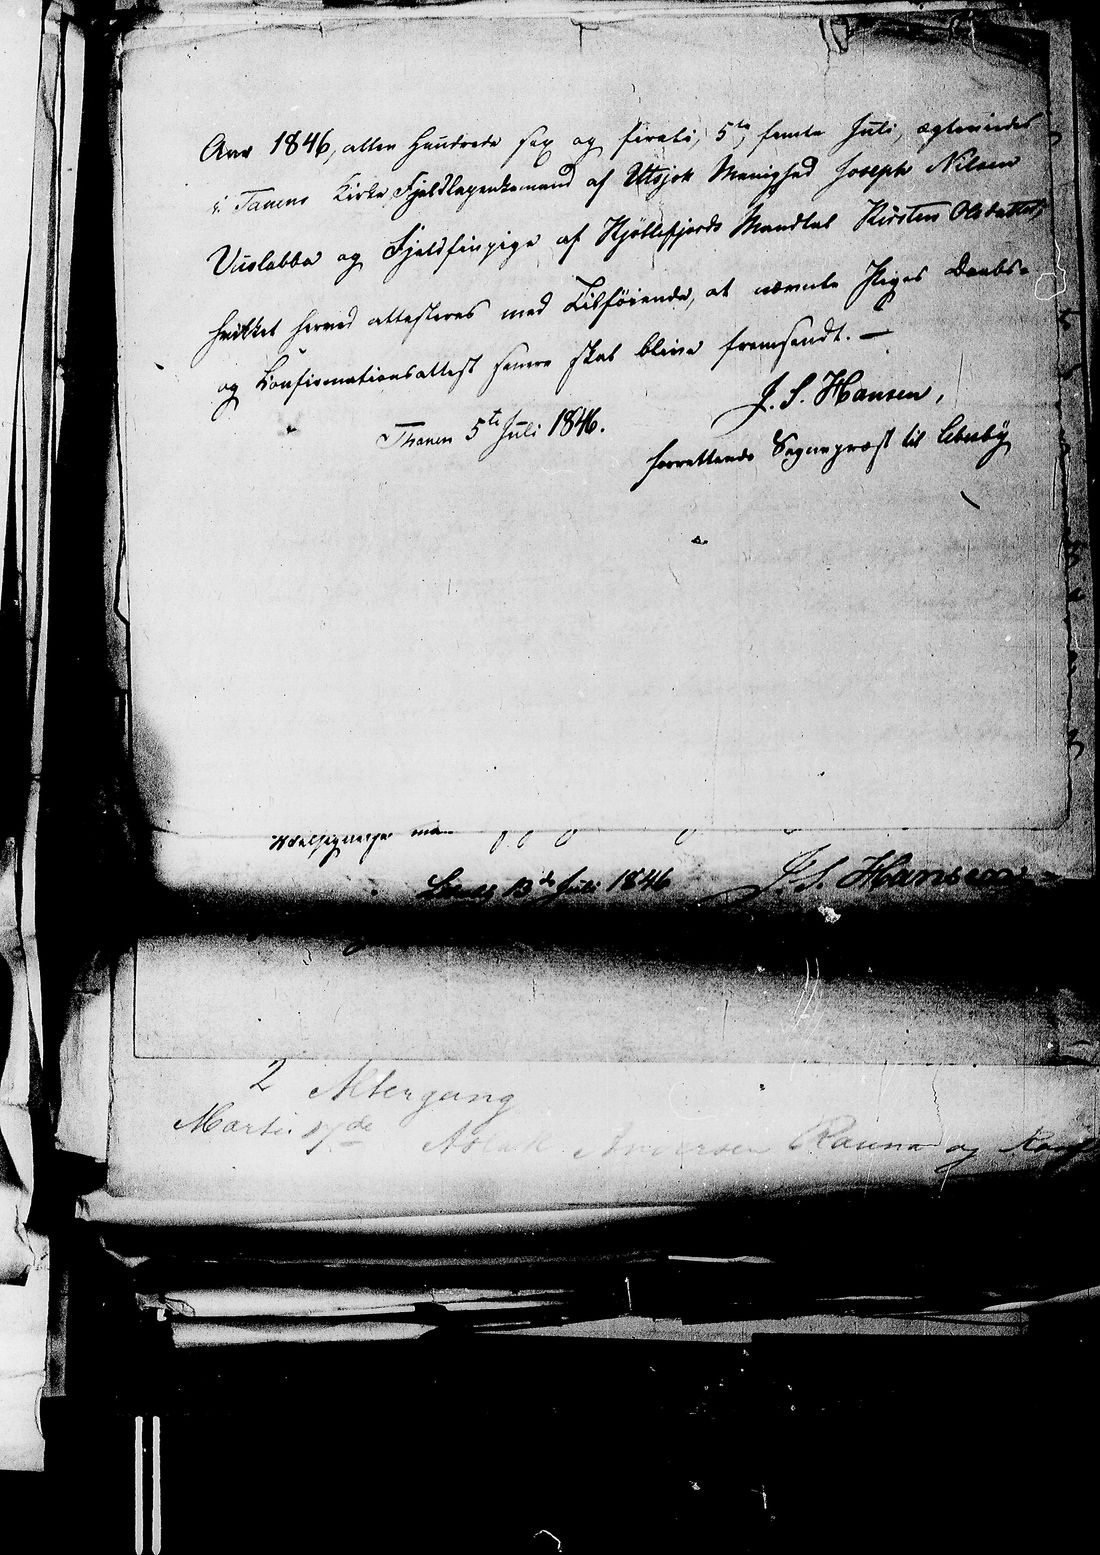 Aar 1846, atten Hundrede sex og fireti, 5te, femte Juli, ægteviedes
i Tanens Kirke Fjeldlappenkemand af Utsjok Menighed Joseph Nilsen
Vuolabba og Fjeldfinpige af Kjöllefjords Mandtal Kirsten Olsdatter,
hvilket herved attesteres med Tilföiende, at nævnte Piges Daabs-
og Confirmationsattest senere skal blive fremsendt. —
Thanen 5te Juli 1846.
J. S. Hansen,
forrettende Sognepræst til Lebesby
13de Juli 1846
J. S. Hansen
2 Altergang
Martii 17de Aslak Andersen Rauna og